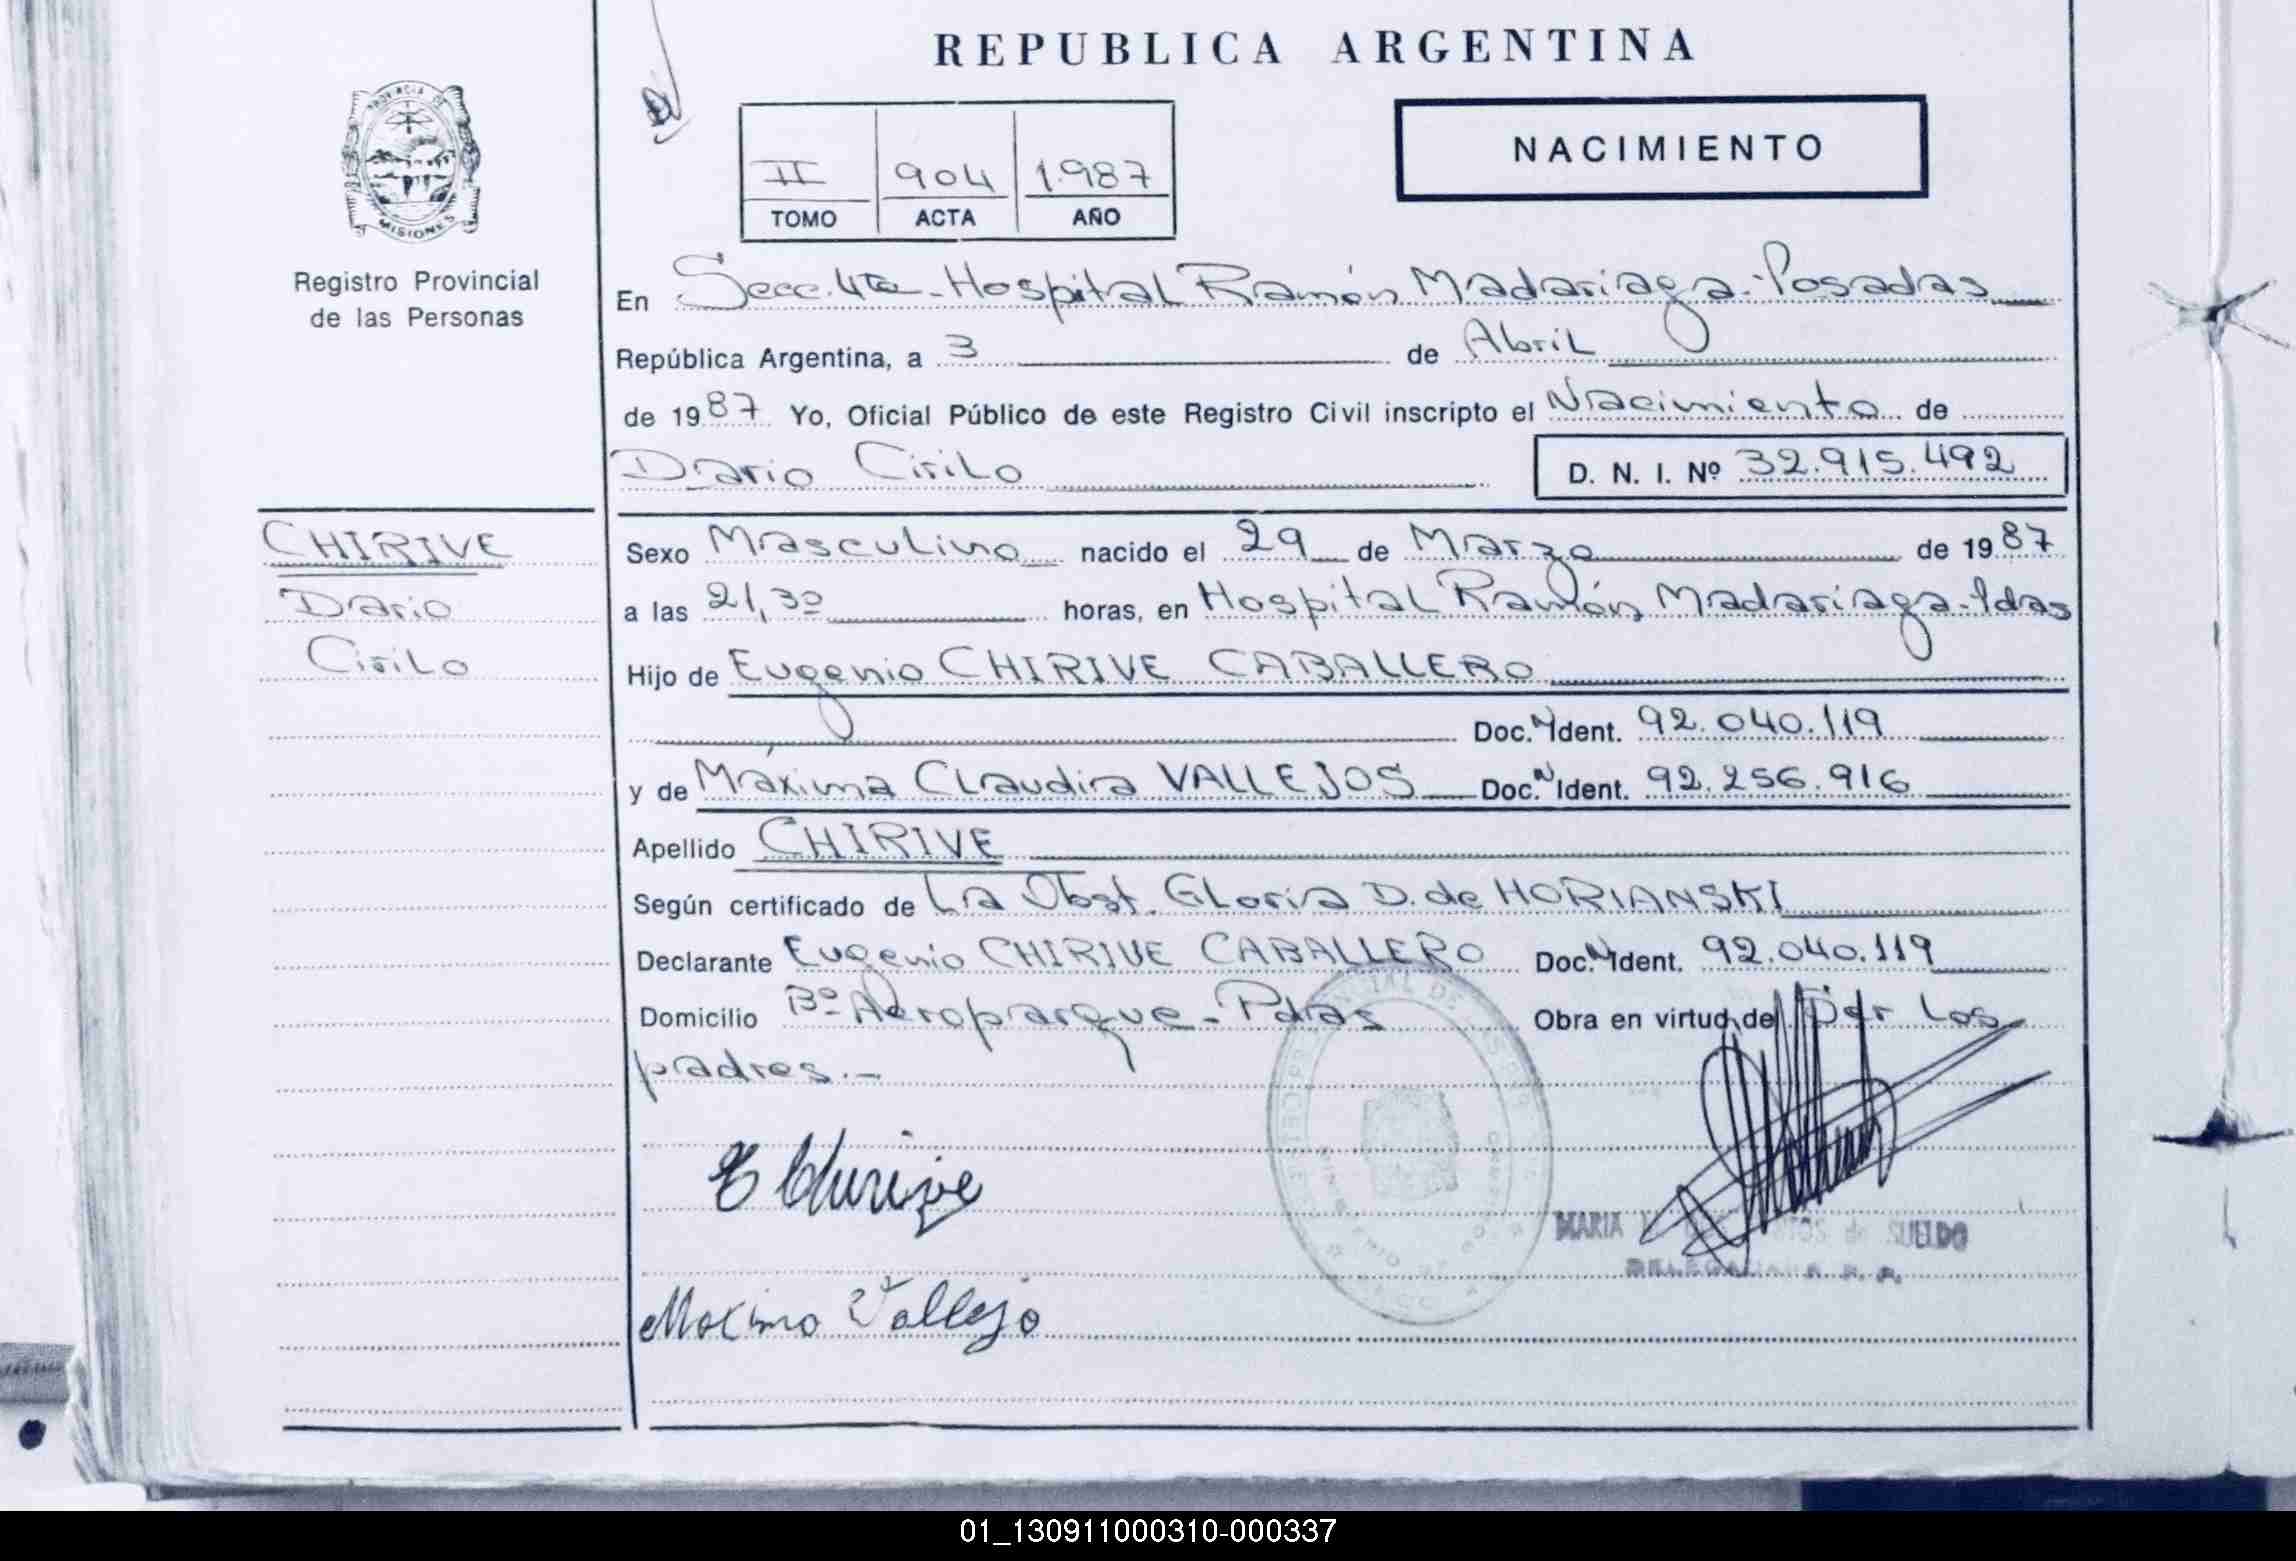 REPUBLICA ARGENTINA
PROVINCIA DE
MISIONES
Registro Provincial
de las Personas
II 904 1.987
TOMO ACTA AÑO
NACIMIENTO
En Secc. 4ta - Hospital Ramón Madariaga - Posadas
República Argentina, a 3 de Abril
de 1987 Yo, Oficial Público de este Registro Civil inscripto el Nacimiento de
Dario Cirilo D. N. I. Nº 32.915.492
CHIRIVE
Dario
Cirilo
Sexo Masculino nacido el 29 de Marzo de 1987
a las 21,30 horas, en Hospital Ramón Madariaga - Pdas
Hijo de Eugenio CHIRIVE CABALLERO
Doc. N Ident. 92.040.119
y de Máxima Claudia VALLEJOS Doc. N Ident. 92.256.916
Apellido CHIRIVE
Según certificado de La Obst. Gloria D. de HORIANSKI
Declarante Eugenio CHIRIVE CABALLERO Doc. N Ident. 92.040.119
Domicilio Bº Aeroparque - Pdas Obra en virtud de Ser los
padres.-
E Chirive
MARIA de SUELDO
Maximo Vallejo
01_130911000310-000337